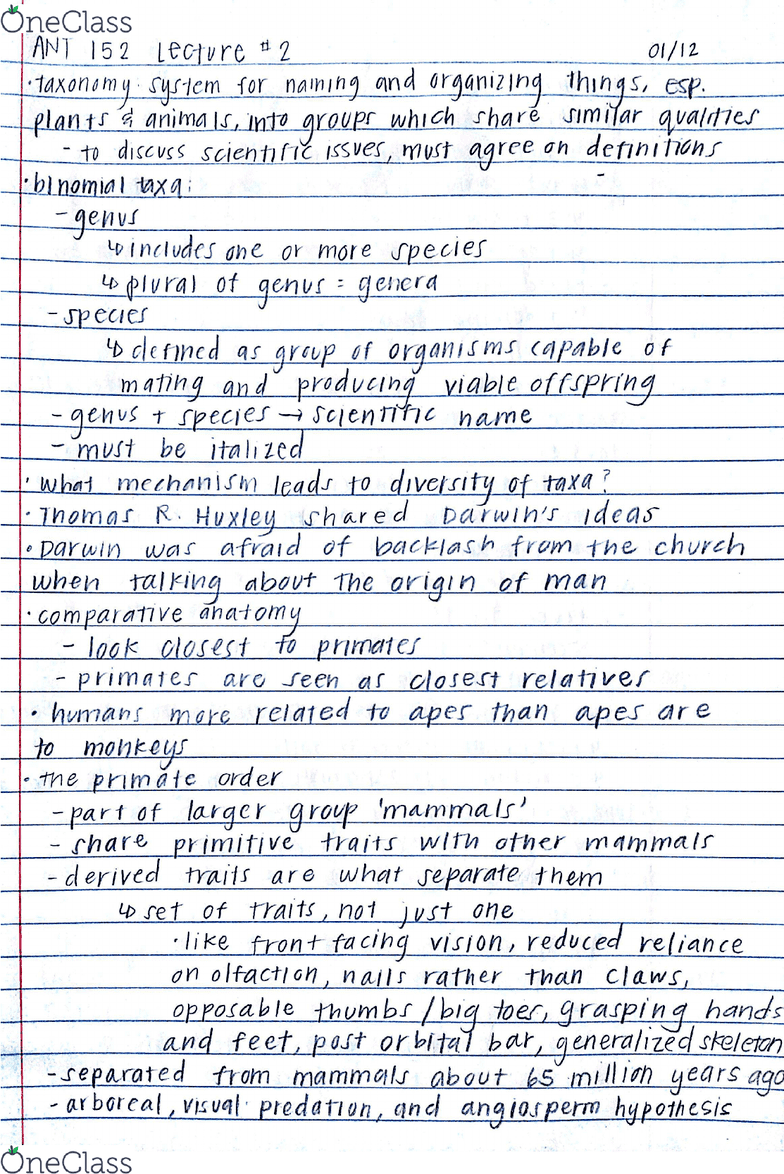 OneClass
ANT 152 Lecture #2 01/12
·taxonomy: system for naming and organizing things, esp.
plants & animals, into groups which share similar qualities
- to discuss scientific issues, must agree on definitions
·binomial taxa:
- genus
↳ includes one or more species
↳ plural of genus = genera
- species
↳ defined as group of organisms capable of
mating and producing viable offspring
- genus + species → scientific name
- must be italized
· what mechanism leads to diversity of taxa?
· Thomas R. Huxley shared Darwin's ideas
· Darwin was afraid of backlash from the church
when talking about the origin of man
· comparative anatomy
- look closest to primates
- primates are seen as closest relatives
· humans more related to apes than apes are
to monkeys
· the primate order
- part of larger group 'mammals'
- share primitive traits with other mammals
- derived traits are what separate them
↳ set of traits, not just one
· like front facing vision, reduced reliance
on olfaction, nails rather than claws,
opposable thumbs/big toes, grasping hands
and feet, post orbital bar, generalized skeleton
- separated from mammals about 65 million years ago
- arboreal, visual predation, and angiosperm hypothesis
OneClass